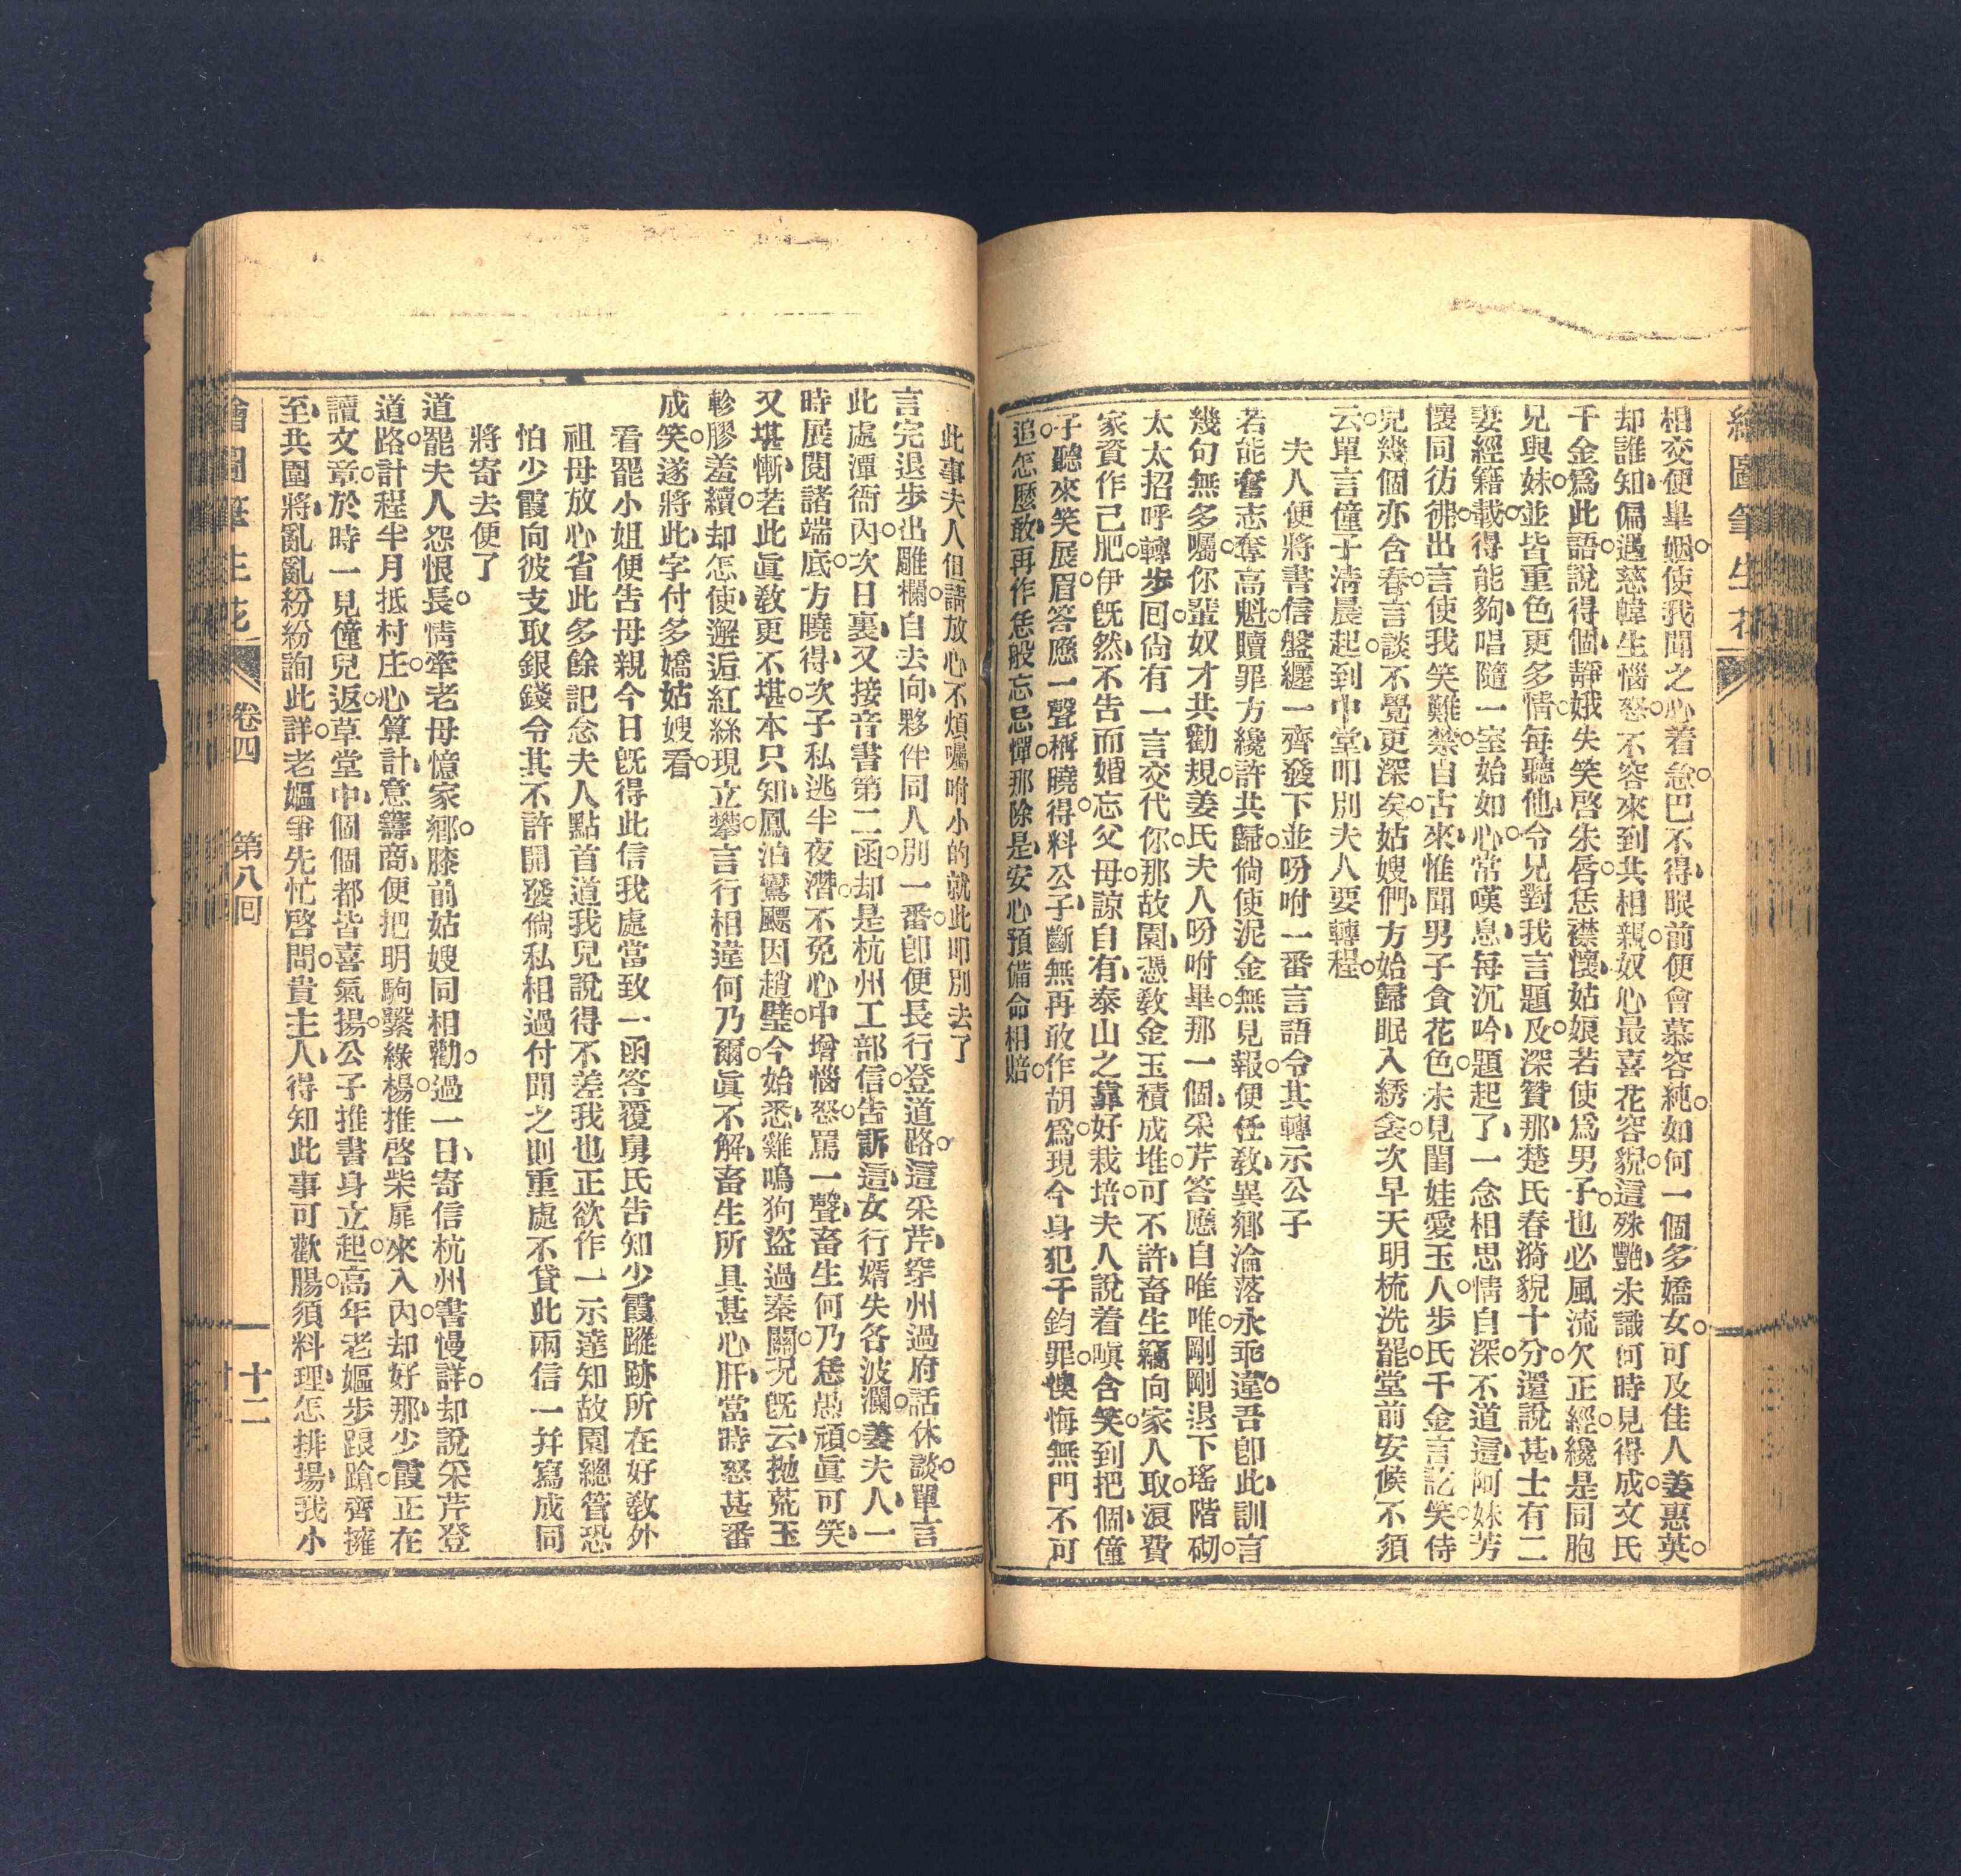 繪圖筆生花
相交便畢姻。使我聞之心着急。巴不得眼前便會慕容純。如何一個多嬌女。可及佳人姜惠英。
却誰知、偏遇慈幃生惱怒。不容來到共相親。奴心最喜花容貌。這殊艷、未識何時見得成。文氏
千金爲此語。說得個、靜娥失笑啓朱唇。恁襟懷、姑娘若使爲男子。也必風流欠正經。纔是同胞
兄與妹。並皆重色更多情。每聽他、令兄對我言題及。深贊那、楚氏春漪貌十分。還說甚、士有二
妻經籍載。得能夠、唱隨一室始如心。常嘆息、每沉吟、題起了、一念相思情自深。不道這、阿妹芳
懷同彷彿。出言使我笑難禁。自古來、惟聞男子貪花色。未見閨娃愛玉人。步氏千金言訖笑。侍
兒幾個亦含春。言談不覺更深矣。姑嫂們、方始歸眠入綉衾。次早天明梳洗罷。堂前安候不須
云。單言僮子清晨起。到中堂、叩別夫人要轉程。
夫人便將書信盤纏一齊發下並吩咐一番言語令其轉示公子
若能奮志奪高魁。贖罪方纔許共歸。倘使泥金無見報。便任教、異鄉淪落永乖違。吾卽此、訓言
幾句無多囑。你輩奴才共勸規。姜氏夫人吩咐畢。那一個、采芹答應自唯唯。剛剛退下瑤階砌。
太太招呼轉步回。尙有一言交代你。那故園、憑敎金玉積成堆。可不許、畜生竊向家人取。浪費
家資作己肥。伊旣然、不告而婚忘父母。諒自有、泰山之靠好栽培。夫人說着嗔含笑。到把個、僮
子聽來笑展眉。答應一聲稱曉得。料公子、斷無再敢作胡爲。現今身犯千鈞罪。懊悔無門不可
追。怎麽敢、再作恁般忘忌憚。那除是、安心預備命相賠。
此事夫人但請放心不煩囑咐小的就此叩別去了
言完退步出雕欄。自去向、夥伴同人別一番。卽便長行登道路。這采芹、穿州過府話休談。單言
此處潭衙內。次日裏、又接音書第二函。却是杭州工部信。告訴這、女行婿失各波瀾。姜夫人、一
時展閱諸端底。方曉得、次子私逃半夜潛。不免心中增惱怒。罵一聲、畜生何乃恁愚頑。眞可笑、
又堪慚、若此眞敎更不堪。本只知、鳳泊鸞飄因趙璧。今始悉、雞鳴狗盜過秦關。況旣云、拋荒玉
軫膠羞續。却怎使、邂逅紅絲現立攀。言行相違何乃爾。眞不解、畜生所具甚心肝。當時怒甚番
成笑。遂將此、字付多嬌姑嫂看。
看罷小姐便告母親今日旣得此信我處當致一函答覆舅氏告知少霞蹤跡所在好敎外
祖母放心省此多餘記念夫人點首道我兒說得不差我也正欲作一示達知故園總管恐
怕少霞向彼支取銀錢令其不許開發倘私相過付聞之則重處不貸此兩信一幷寫成同
將寄去便了
道罷夫人怨恨長。情牽老母憶家鄉。膝前姑嫂同相勸。過一日、寄信杭州書慢詳。却說采芹登
道路。計程半月抵村庄。心算計、意籌商、便把明駒繫綠楊。推啓柴扉來入內。却好那、少霞正在
讀文章。於時一見僮兒返。草堂中、個個都皆喜氣揚。公子推書身立起。高年老嫗步踉蹌。齊擁
至、共圍將、亂亂紛紛詢此詳。老嫗爭先忙啓問。貴主人、得知此事可歡腸。須料理、怎排場、我小
繪圖筆生花 卷四 第八回 十二